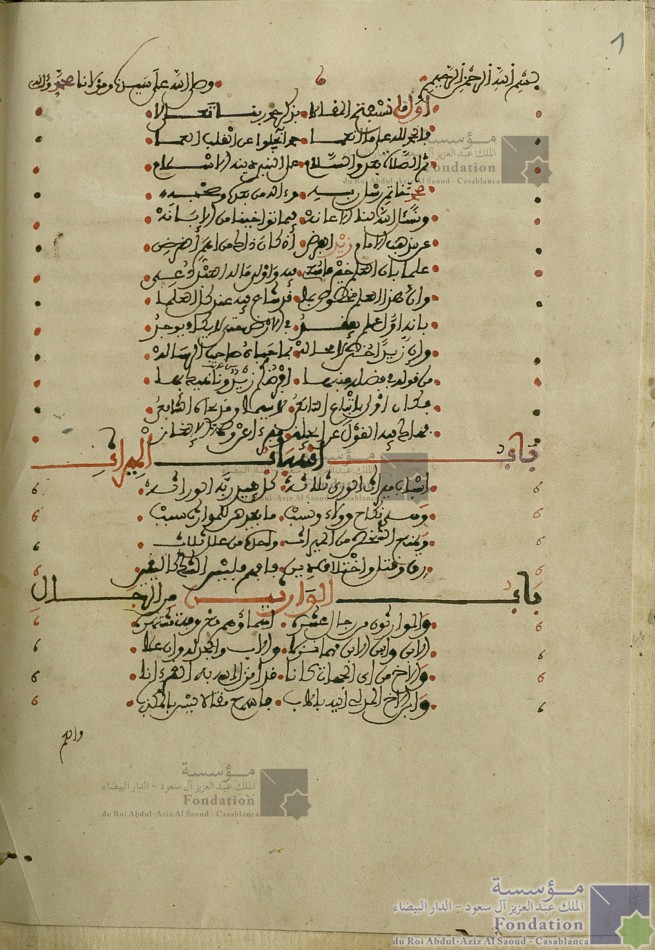 1
بسم الله الرحمن الرحيم وصلى الله على سيدنا ومولانا محمد وءاله
أول ما نستفتح المقالا بذكر حمد ربنا تعالا
فالحمد لله على ما أنعما حمدا يجلوا عن القلب العما
ثم الصلاة بعد والسلام على النبي دينه الاسلام
محمد خاتم رسل ربه وءاله من بعده وصحبه
ونسأل الله لنا الاعانه فيما توخينا من الابانه
عن مذهب الامام زيد الفرضي إذ كان ذاك من اهم الغرض
علما بان العلم خير ما سعي فيه واولى ما له العبد دعي
وان هذا العلم مخصوص بما قد شاع فيه عند كل العلما
بانه اول علم يفقد في الارض حتى لا يكاد يوجد
وان زيدا خص لا محاله بما حباه صاحب الرساله
من قوله في فضله منبها افرضكم زيد وناهيك بها
فكان اولى باتباع التابع لا سيما وقد نحاه الشافع
فهاك فيه القول عن ايجاز مبرءا عن وصمة الالغاز
باب اسباب الميراث
اسباب ميراث الورى ثلاثه كل يفيد ربه الوراثه
وهي نكاح وولاء ونسب ما بعدهن للمواريث سبب
ويمنع الشخص من الميراث واحدة من علل ثلاث
رق وقتل واختلاف دين فافهم فليس الشك كاليقين
باب الوارثين من الرجال
والوارثون من رجال عشره اسماؤهم معروفة مشتهره
الابن وابن الابن مهما نزلا والاب والجد له وان علا
والاخ من اي الجهات كانا قد انزل الله به القرءانا
وابن الاخ المدلي اليه بالاب فاسمع مقالا ليس بالمكذب
والعم
مؤسسة
الملك عبد العزيز آل سعود - الدار البيضاء
Fondation
du Roi Abdul-Aziz Al Saoud - Casablanca